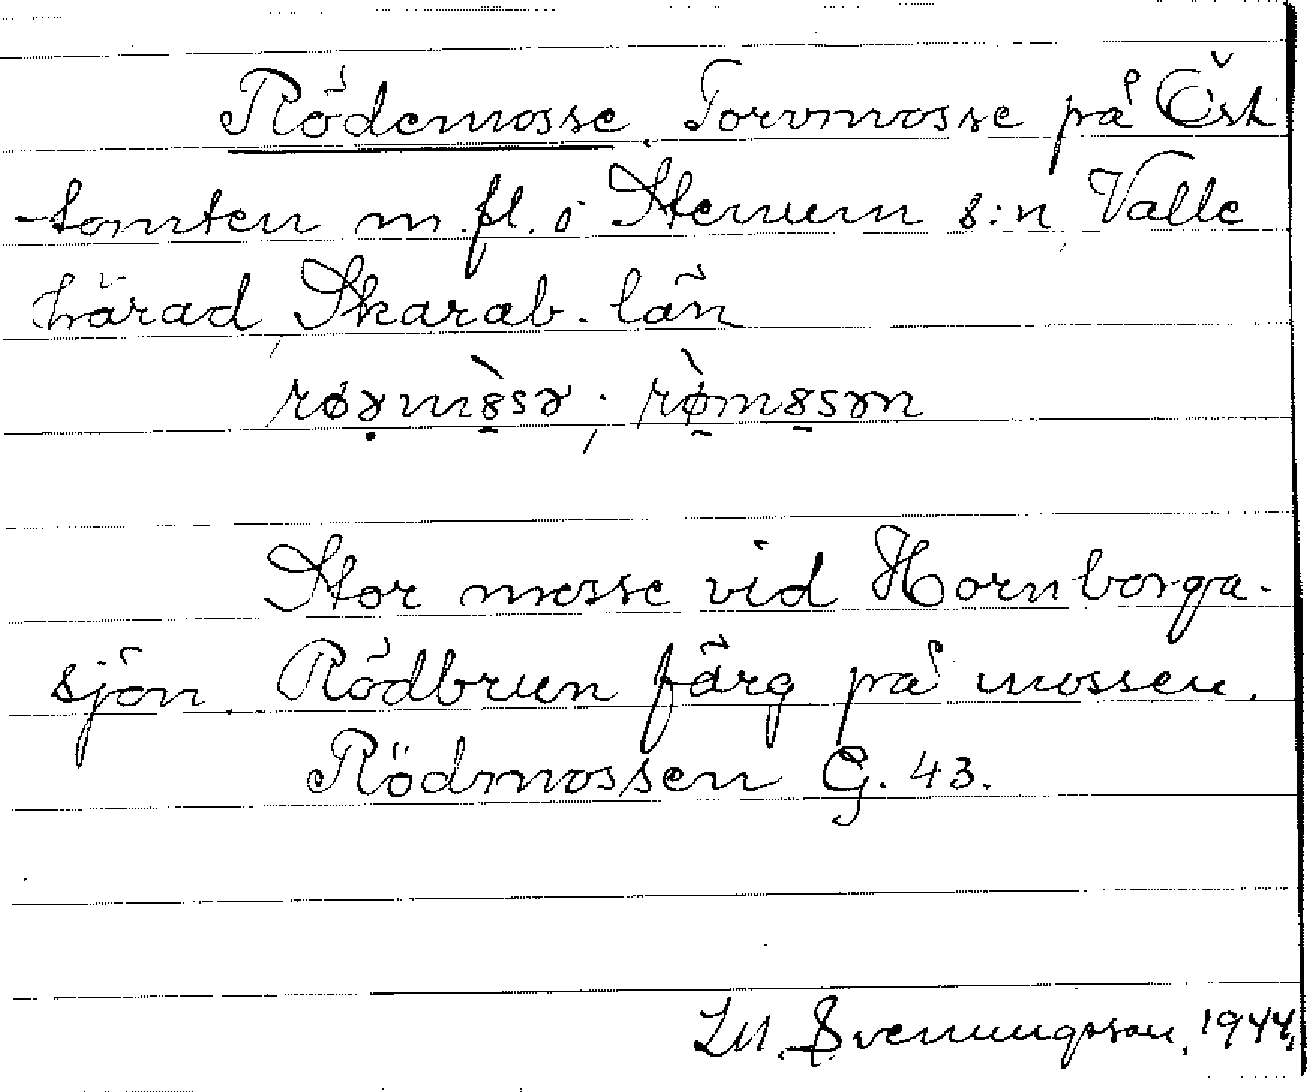 Rödemosse. Torvmosse på Öst
-tomten m.fl. i Stenum s:n, Valle
härad, Skarab. län
røəmɞ̀sə; rø̀mɞsən
Stor mosse vid Hornborga-
sjön. Rödbrun färg på mossen.
Rödmossen G. 43.
Svenungsson, 1944.